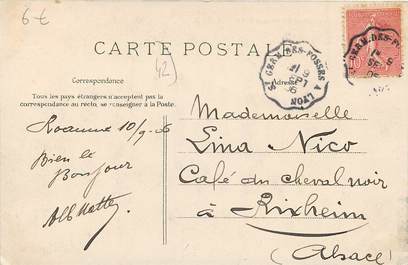 6 €
CARTE POSTAL
42
Correspondance
Tous les pays étrangers n'acceptent pas la
correspondance au recto, se renseigner à la Poste.
Adresse
St GERM.-DES-FOSSÉS A LYON
10
Roanne 10/9-06
Bien le
Bonjour
Mademoiselle
Lina Nico
Café du cheval noir
à Rixheim
(Alsace)